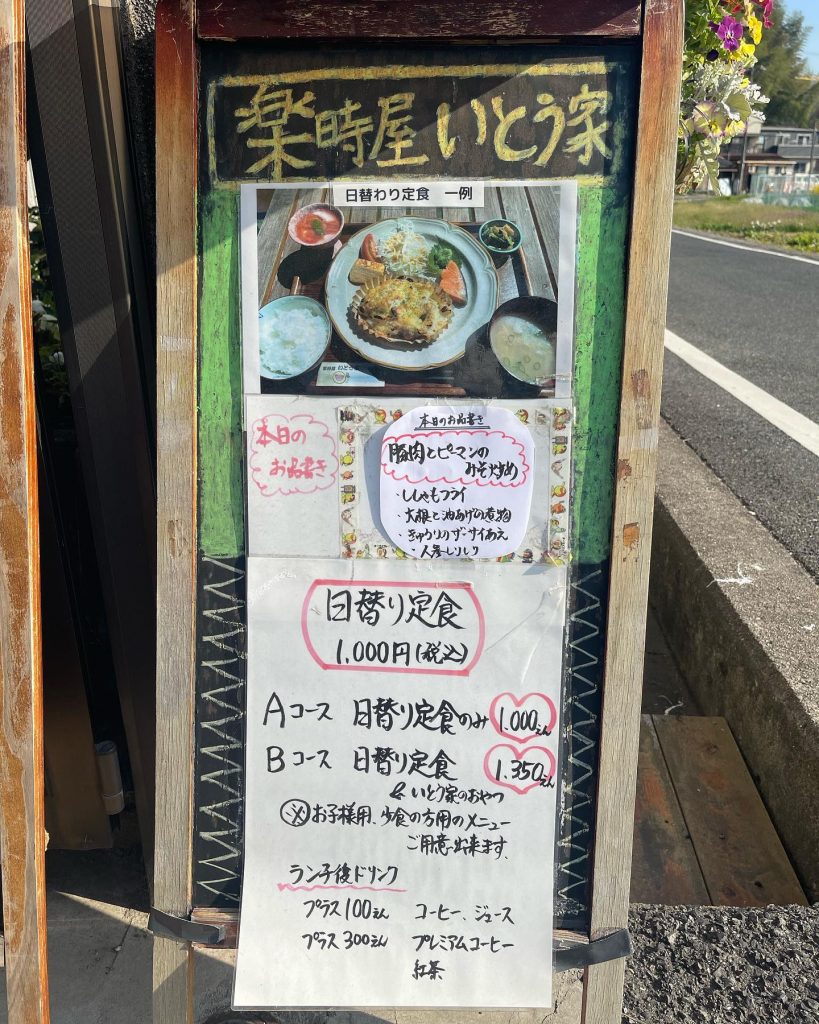 楽時屋 いとう家
日替わり定食 一例
本日の
お品書き
本日のお品書き
豚肉とピーマンの
みそ炒め
・ししゃもフライ
・大根と油あげの煮物
・きゅうりのザーサイあえ
・人参しりしり
日替り定食
1,000円(税込)
Aコース 日替り定食のみ 1,000えん
Bコース 日替り定食 1,350えん
& いとう家のおやつ
※お子様用、少食の方用のメニュー
ご用意出来ます。
ランチ後ドリンク
プラス100えん コーヒー、ジュース
プラス300えん プレミアムコーヒー
紅茶